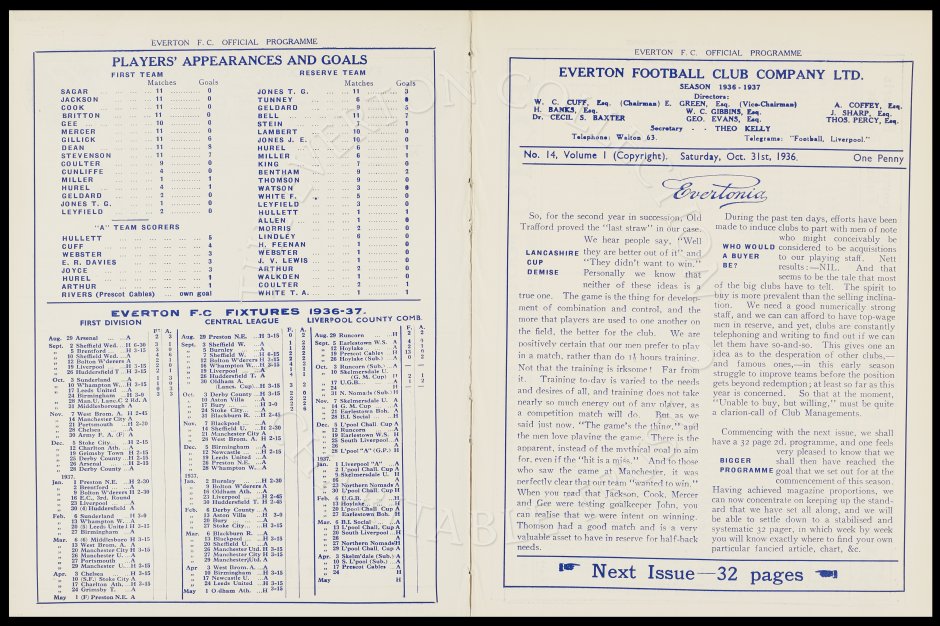 EVERTON F.C. OFFICIAL PROGRAMME
PLAYERS' APPEARANCES AND GOALS
FIRST TEAM
Matches Goals
SAGAR 11 0
JACKSON 11 0
COOK 11 0
BRITTON 11 0
GEE 10 0
MERCER 11 0
GILLICK 11 6
DEAN 11 8
STEVENSON 11 7
COULTER 9 0
CUNLIFFE 4 0
MILLER 1 1
HUREL 4 1
GELDARD 2 0
JONES T. G. 1 0
LEYFIELD 2 0
"A" TEAM SCORERS
HULLETT 5
CUFF 4
WEBSTER 3
E. R. DAVIES 3
JOYCE 3
HUREL 1
ARTHUR 1
RIVERS (Prescot Cables) ... own goal
RESERVE TEAM
Matches Goals
JONES T. G. 11 3
TUNNEY 6 0
GELDARD 9 5
BELL 11 7
STEIN 7 1
LAMBERT 10 0
JONES J. E. 10 0
HUREL 6 1
MILLER 6 1
KING 7 0
BENTHAM 9 2
THOMSON 9 0
WATSON 3 0
WHITE F. 5 0
LEYFIELD 3 0
HULLETT 1 1
ALLEN 1 0
MORRIS 2 0
LINDLEY 6 0
H. FEENAN 1 0
WEBSTER 1 0
J. V. LEWIS 1 0
ARTHUR 2 0
WALKDEN 1 0
COULTER 2 1
WHITE T. A. 1 1
EVERTON F.C FIXTURES 1936-37.
FIRST DIVISION
F. A.
Aug. 29 Arsenal A 2 3
Sept. 2 Sheffield Wed. H 6-30 3 1
" 5 Brentford H 3-15 3 0
" 10 Sheffield Wed. A
" 12 Bolton W'derers A
" 19 Liverpool H 3-15 2 0
" 26 Huddersfield T H 3-15 2 1
Oct. 3 Sunderland A 1 3
" 10 W'hampton W. H 3-15 1 0
" 17 Leeds United A 0 3
" 24 Birmingham H 3-0 3 3
" 28 Man U. Lanc. C 2 Rd. A
" 31 Middlesborough A
Nov. 7 West Brom. A. H 2-45
" 14 Manchester City A
" 21 Portsmouth H 2-30
" 28 Chelsea A
" 30 Army F. A. (F) A
Dec. 5 Stoke City H 2-15
" 12 Charlton Ath. A
" 19 Grimsby Town H 2-15
" 25 Derby County H 2-15
" 26 Arsenal H 2-15
" 28 Derby County A
1937.
Jan. 1 Preston N.E. H 2-30
" 2 Brentford A
" 9 Bolton W'derers H 2-30
" 16 E.C., 3rd. Round
" 23 Liverpool A
" 30 (4) Huddersfield A
Feb. 6 Sunderland H 3-0
" 13 W'hampton W. A
" 20 (5) Leeds United H 3-15
" 27 Birmingham A
Mar. 6 (6) Middlesboro H 3-15
" 13 West Brom. A. A
" 20 Manchester City H 3-15
" 26 Manchester U. A
" 27 Portsmouth A
" 29 Manchester U. H 3-15
Apr. 3 Chelsea H 3-15
" 10 (S.F.) Stoke City A
" 17 Charlton Ath. H 3-15
" 24 Grimsby T. A
May 1 (F) Preston N.E. A
CENTRAL LEAGUE
F. A.
Aug. 29 Preston N.E. H 3-15
Sept. 3 Sheffield W. A
" 5 Burnley A
" 7 Sheffield W. H 6-15
" 12 Bolton W'derers H
" 16 W'hampton W. H 3-15
" 19 Liverpool A
" 26 Huddersfield T. A
" 30 Oldham A.
(Lancs. Cup) H 3-15
Oct. 3 Derby County H 3-15
" 10 Aston Villa A
" 17 Bury H 3-0
" 24 Stoke City A
" 31 Blackburn R. H 2-45
Nov. 7 Blackpool A
" 14 Sheffield U. H 2-30
" 21 Manchester City A
" 28 West Brom. A. H 2-15
Dec. 5 Birmingham A
" 12 Newcastle H 2-15
" 19 Leeds United A
" 28 Preston N.E. A
" 28 W'hampton W. A
1937.
Jan. 2 Burnley H 2-30
" 9 Bolton W'derers A
" 16 Oldham Ath. A
" 23 Liverpool H
" 30 Huddersfield T. H 2-45
Feb. 6 Derby County A
" 13 Aston Villa H 3-0
" 20 Bury A
" 27 Stoke City H 3-15
Mar. 6 Blackburn R. A
" 13 Blackpool H 3-15
" 20 Sheffield U. A
" 26 Manchester Utd. H 3-15
" 27 Manchester City H 3-15
" 29 Manchester Utd. A
Apr. 3 West Brom. A. A
" 10 Birmingham H 3-15
" 17 Newcastle U. A
" 24 Leeds United H 3-15
May 1 Oldham Ath. H 3-15
LIVERPOOL COUNTY COMB.
F. A.
Aug. 29 Runcorn H
Sept. 5 Earlestown W.S. A
" 12 Hoylake A
" 19 Prescot Cables H
" 26 Hoylake (Sub.) A
Oct. 3 Runcorn (Sub.) A
" 10 Skelmersdale U.
(G.M. Cup) H
" 17 U.G.B. A
" 24
" 31 N. Nomads (Sub.) H
Nov. 7 Skelmersdale U. A
" 14 G. M. Cup A
" 21 Earlestown Boh. A
" 28 B.I. Social H
Dec. 5 L'pool Chall. Cup A
" 12 Runcorn A
" 19 Earlestown W.S. H
" 25 South Liverpool A
" 26
" 28 L'pool "A" (G.P.) H
1937.
Jan. 1 Liverpool "A" A
" 2 L'pool Chall. Cup A
" 9 Prescot Cables A
" 16 Northern Nomads A
" 30 L'pool Chall. Cup H
Feb. 6 U.G.B. H
" 13 Hoylake H
" 20 L'pool Chall. Cup A
" 27 Earlestown Boh. H
Mar. 6 B.I. Social A
" 13 L'pool Chall. Cup A
" 20 South Liverpool A
" 27 Northern Nomads H
" 29 L'pool Chall. Cup A
Apr. 3 Skelm'dale (Sub.) A
" 10 S. L'pool (Sub.) A
" 17 Prescot Cables A
" 24 H
May H
EVERTON F.C. OFFICIAL PROGRAMME
EVERTON FOOTBALL CLUB COMPANY LTD.
SEASON 1936-1937
Directors:
W. C. CUFF, Esq. (Chairman) E. GREEN, Esq. (Vice-Chairman) A. COFFEY, Esq.
H. BANKS, Esq. W. C. GIBBINS, Esq. J. SHARP, Esq.
Dr. CECIL S. BAXTER GEO. EVANS, Esq. THOS. PERCY, Esq.
Secretary - - THEO KELLY
Telephone: Walton 63. Telegrams: "Football, Liverpool."
No. 14, Volume 1 (Copyright). Saturday, Oct. 31st, 1936. One Penny
Evertonia
So, for the second year in succession, Old
Trafford proved the "last straw" in our case.
LANCASHIRE CUP DEMISE
We hear people say, "Well
they are better out of it" and
"They didn't want to win."
Personally we know that
neither of these ideas is a
true one. The game is the thing for develop-
ment of combination and control, and the
more that players are used to one another on
the field, the better for the club. We are
positively certain that our men prefer to play
in a match, rather than do 1½ hours training.
Not that the training is irksome! Far from
it. Training to-day is varied to the needs
and desires of all, and training does not take
nearly so much energy out of any player, as
a competition match will do. But as we
said just now, "The game's the thing," and
the men love playing the game. There is the
apparent, instead of the mythical goal to aim
for, even if the "hit is a miss." And to those
who saw the game at Manchester, it was
perfectly clear that our team "wanted to win."
When you read that Jackson, Cook, Mercer
and Gee were testing goalkeeper John, you
can realise that we were intent on winning.
Thomson had a good match and is a very
valuable asset to have in reserve for half-back
needs.
During the past ten days, efforts have been
made to induce clubs to part with men of note
WHO WOULD A BUYER BE?
who might conceivably be
considered to be acquisitions
to our playing staff. Nett
results:—NIL. And that
seems to be the tale that most
of the big clubs have to tell. The spirit to
buy is more prevalent than the selling inclina-
tion. We need a good numerically strong
staff, and we can afford to have top-wage
men in reserve, and yet, clubs are constantly
telephoning and writing to find out if we can
let them have so-and-so. This gives one an
idea as to the desperation of other clubs,—
and famous ones,—in this early season
struggle to improve teams before the position
gets beyond redemption; at least so far as this
year is concerned. So that at the moment,
"Unable to buy, but willing," must be quite
a clarion-call of Club Managements.
Commencing with the next issue, we shall
have a 32 page 2d. programme, and one feels
BIGGER PROGRAMME
very pleased to know that we
shall then have reached the
goal that we set out for at the
commencement of this season.
Having achieved magazine proportions, we
can now concentrate on keeping up the stand-
ard that we have set all along, and we will
be able to settle down to a stabilised and
systematic 32 pager, in which week by week
you will know exactly where to find your own
particular fancied article, chart, &c.
Next Issue—32 pages